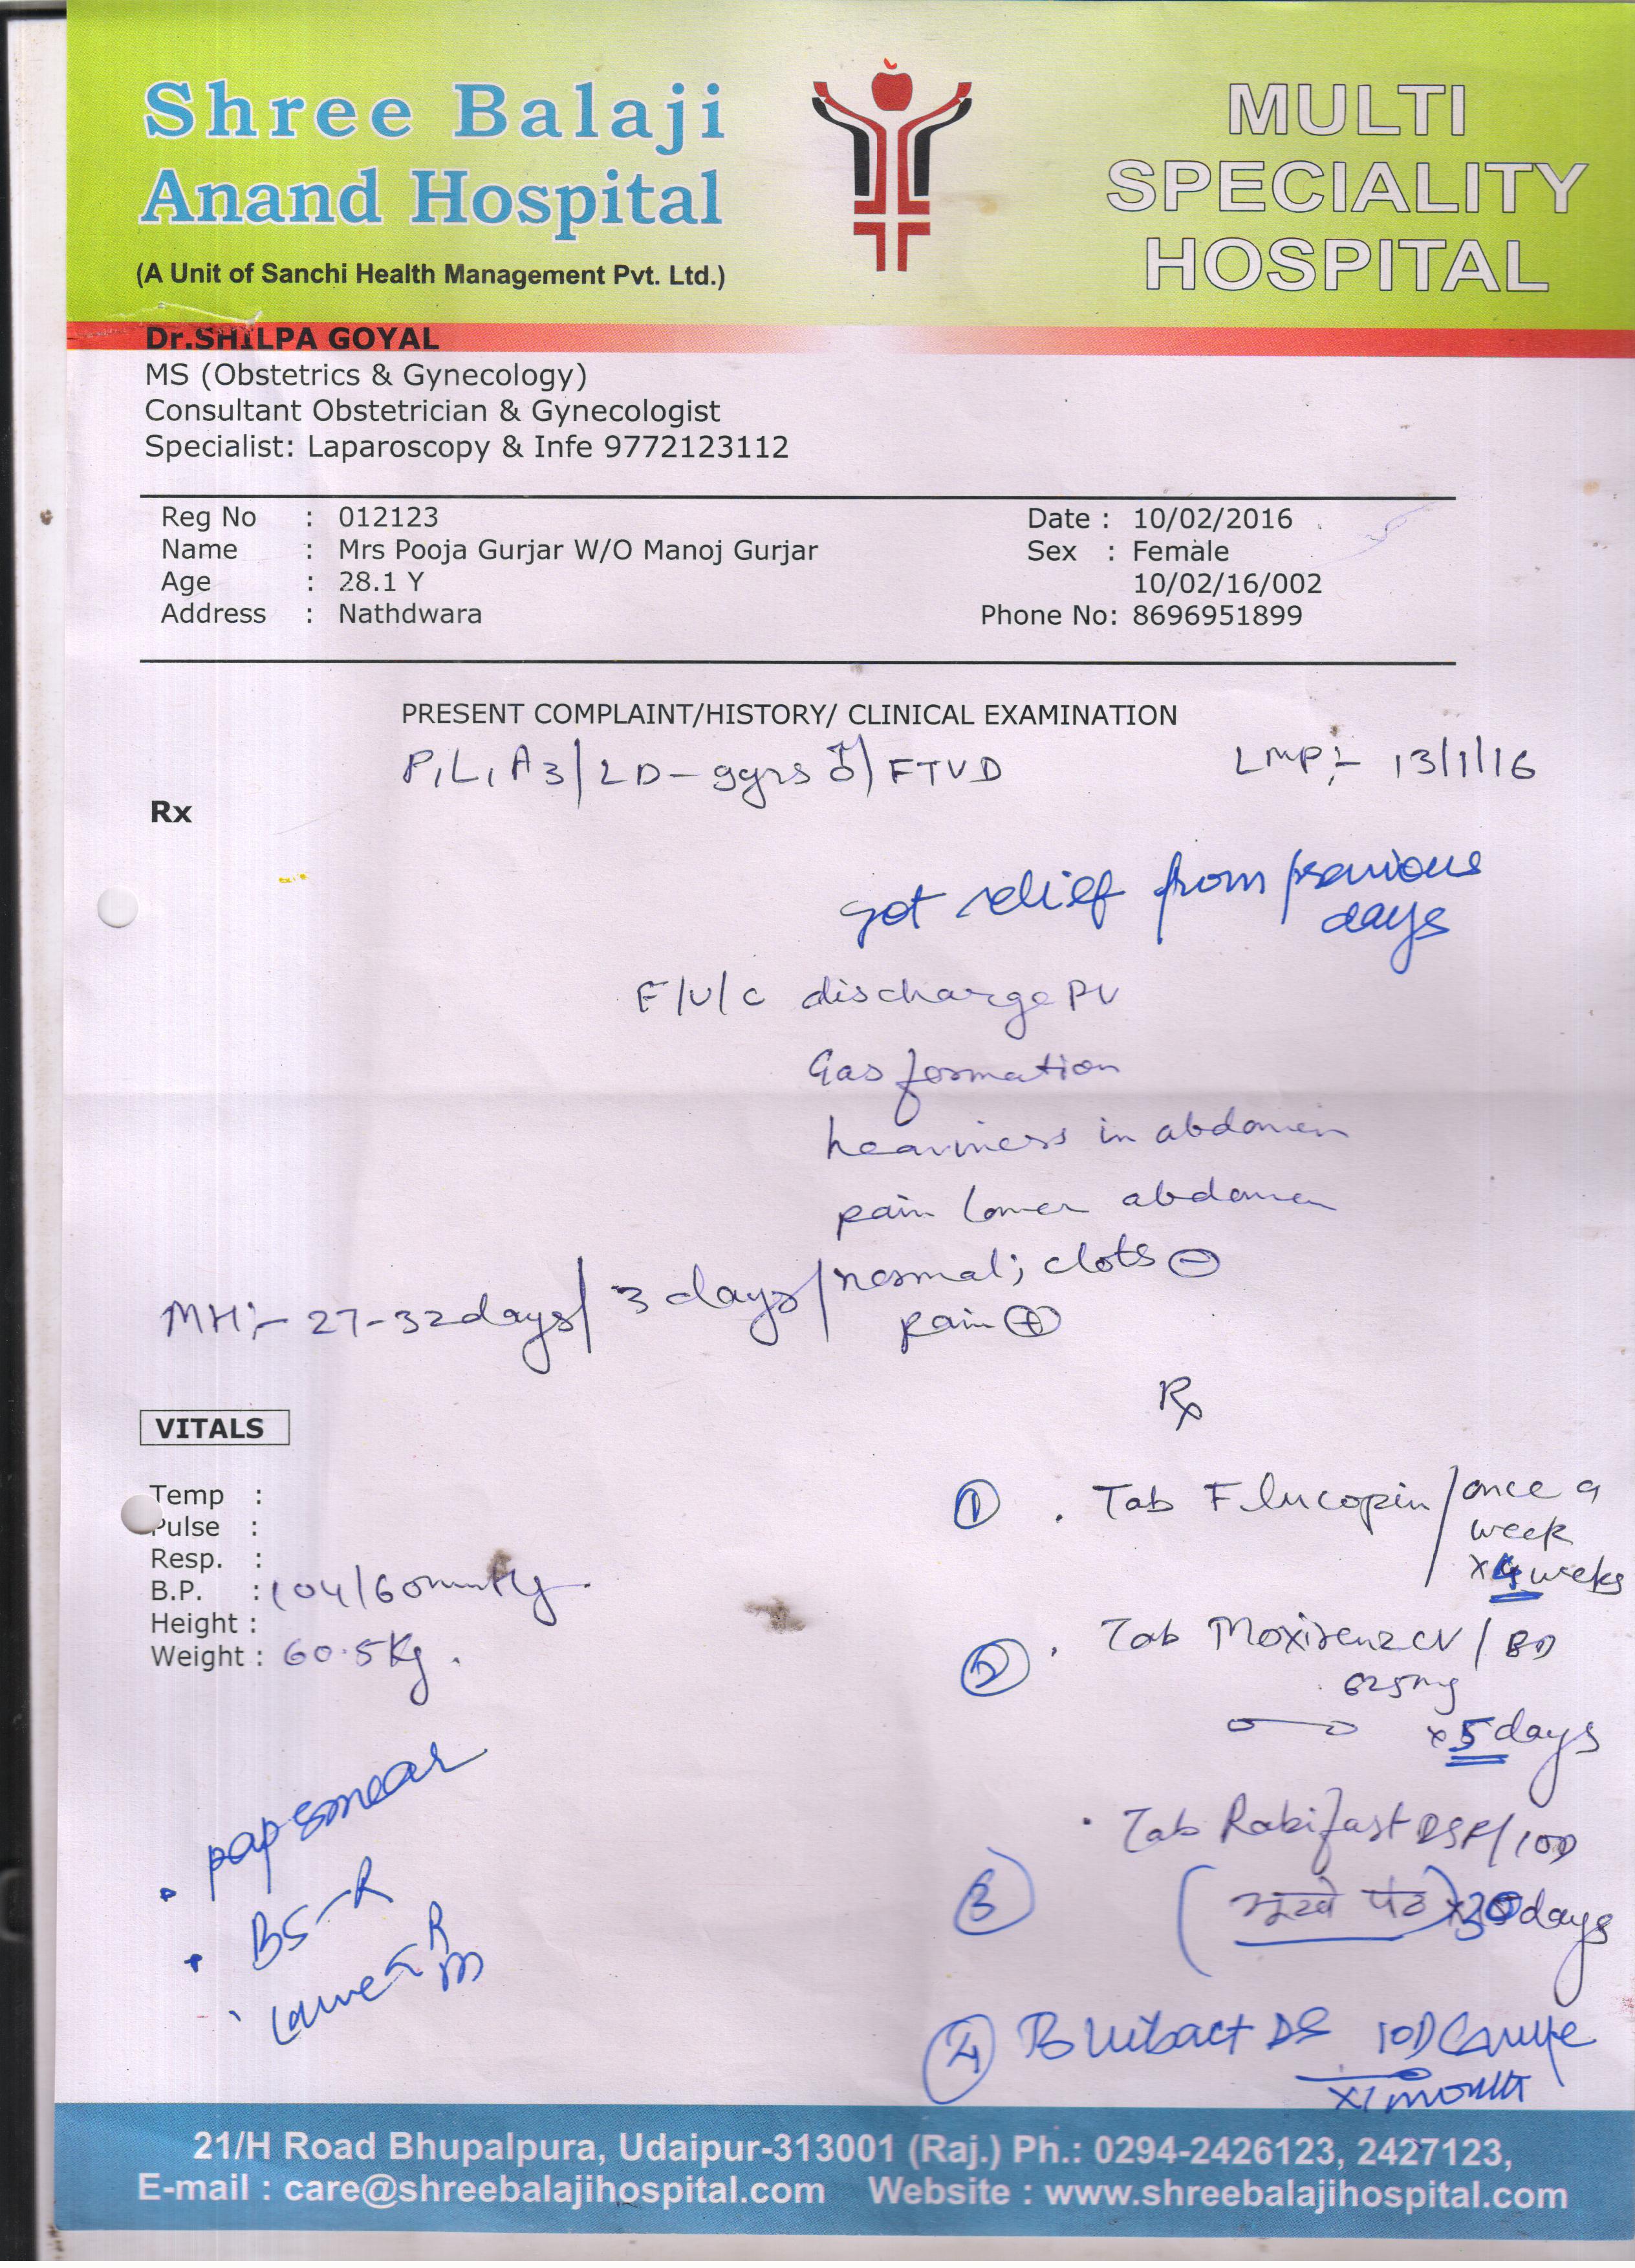 Shree Balaji
Anand Hospital
(A Unit of Sanchi Health Management Pvt. Ltd.)
MULTI
SPECIALITY
HOSPITAL
Dr.SHILPA GOYAL
MS (Obstetrics & Gynecology)
Consultant Obstetrician & Gynecologist
Specialist: Laparoscopy & Infe 9772123112
Reg No : 012123 Date : 10/02/2016
Name : Mrs Pooja Gurjar W/O Manoj Gurjar Sex : Female
Age : 28.1 Y 10/02/16/002
Address : Nathdwara Phone No: 8696951899
PRESENT COMPLAINT/HISTORY/ CLINICAL EXAMINATION
P1L1A3/LD-9yrs ♂/FTVD LMP:- 13/1/16
Rx
got relief from previous
days
F/U/C discharge PV
Gas formation
heaviness in abdomen
pain lower abdomen
MH:- 27-32days/3 days/normal; clots ⊖
pain ⊕
Rx
VITALS
Temp :
Pulse :
Resp. :
B.P. : 104/60mmHg.
Height :
Weight : 60.5Kg.
① . Tab Flucopin/once a
week
x4weeks
② . Tab CV/BD
625mg
x5days
③ . Tab Rabifast DSR/1OD
(भूखे पेट) x30days
④ DS 1OD
x1month
. papsmear
. BS-R
21/H Road Bhupalpura, Udaipur-313001 (Raj.) Ph.: 0294-2426123, 2427123,
E-mail : care@shreebalajihospital.com Website : www.shreebalajihospital.com